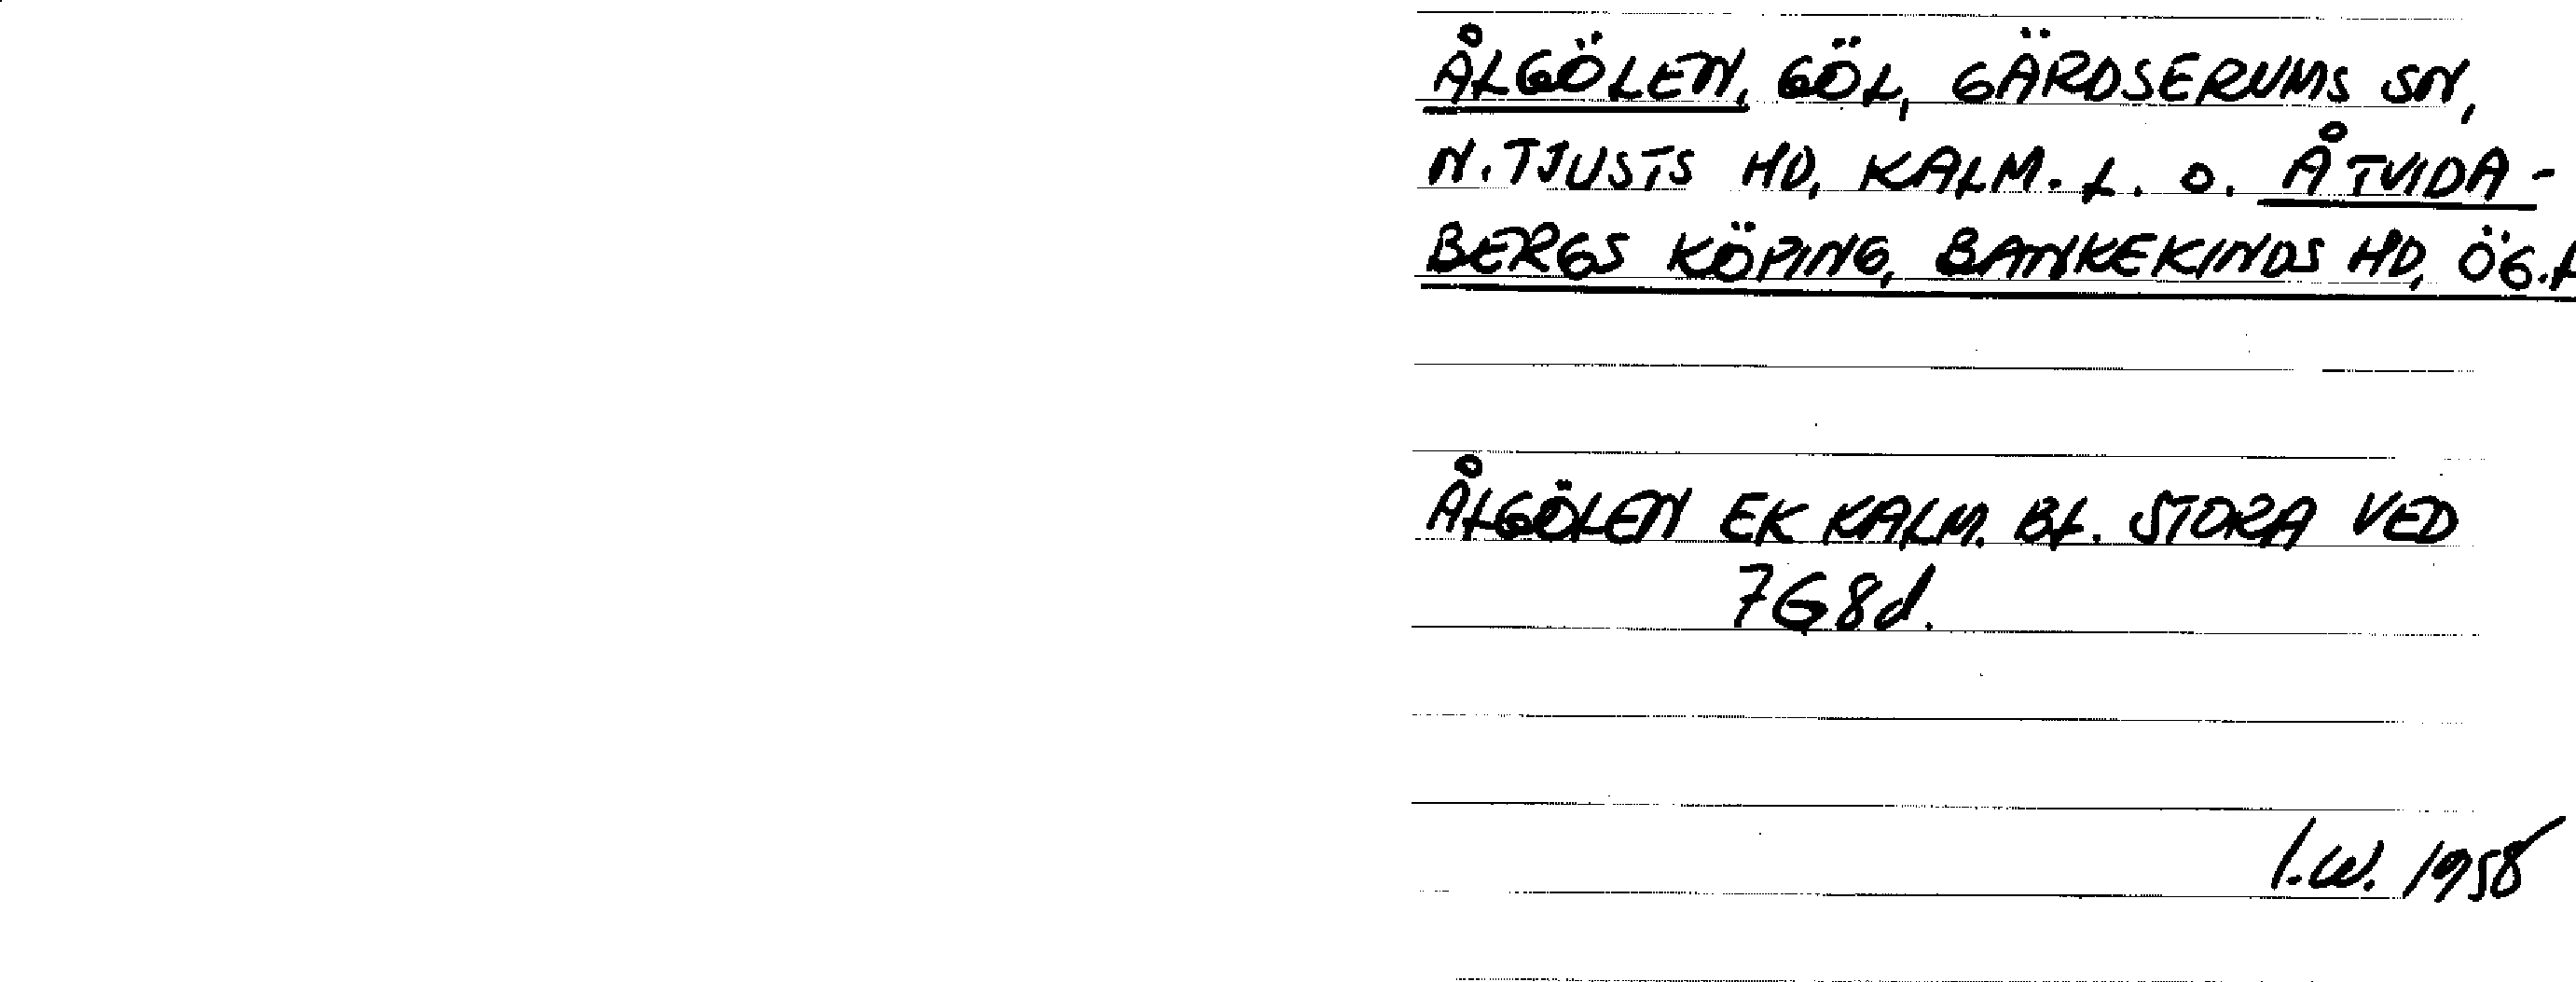 ÅLGÖLEN, GÖL, GÄRDSERUMS SN,
N. TJUSTS HD, KALM. L. O. ÅTVIDA-
BERGS KÖPING, BANKEKINDS HD, ÖG. L
ÅLGÖLEN EK KALM. BL. STORA VED
7G8d.
I.W. 1958